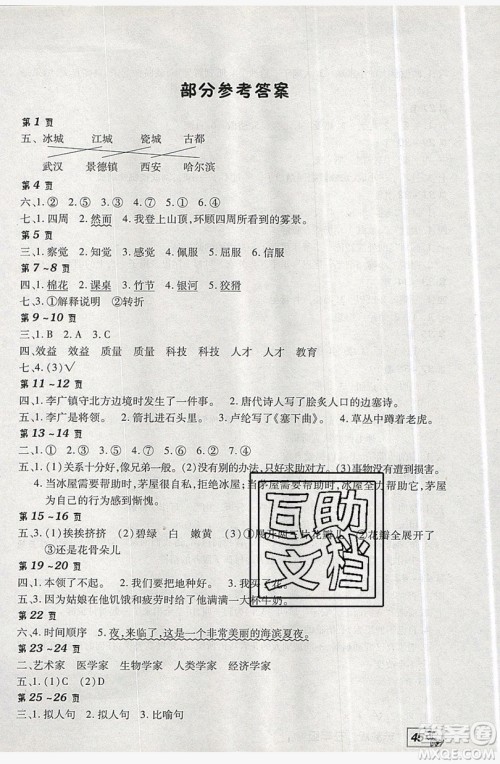 部分参考答案
第1页
五、冰城 江城 瓷城 古都
武汉 景德镇 西安 哈尔滨
第4页
六、1.② 2.⑤ 3.① 4.③
七、1.四周 2.然而 3.1.4.我登上山顶,环顾四周所看到的雾景。
第5页
三、1.察觉 2.知觉 3.感觉 4.佩服 5.屈服 6.信服
第7~8页
四、1.棉花 2.课桌 3.竹节 4.银河 5.狡猾
七、3.①解释说明 ②转折
第9~10页
三、1.D 2.B 3.A 4.C
四、效益 效益 质量 质量 科技 科技 人才 人才 教育
七、4.(3)√
第11~12页
四、1.李广镇守北方边境时发生了一件事。 2.唐代诗人写了脍炙人口的边塞诗。
五、1.李广是将领。 2.箭扎进石头里。 3.卢纶写了《塞下曲》。 4.草丛中蹲着老虎。
第13~14页
二、1.① 2.④ 3.⑤ 4.② 5.③ 6.⑥
五、1.(1)关系十分好,像亲兄弟一样。 (2)没有别的办法,只好求助对方。 (3)事物已经不存在了。
4.当冰屋需要帮助时,茅屋拒绝帮助冰屋,但冰屋却在茅屋需要帮助时帮助了它,茅屋
为自己的自私行为感到惭愧。
第15~16页
五、3.(1)挨挨挤挤 (2)碧绿 白 嫩黄
③还是花骨朵儿
花瓣全展开了
第19~20页
四、1.本领了不起。 2.我们打了胜仗。 3.我买
五、3.因为姑娘在他饥饿和疲劳时送了一大杯牛奶。
第22页
六、4.时间顺序 5.夜,来临了,这是一个非常美丽的海滨夏夜。
第23~24页
二、艺术家 医学家 生物学家 人类学家 经济学家
五、1.(1)C (2)D
第25~26页
三、1.拟人句 2.拟人句 3.比喻句
互助
文档
45
答案圈